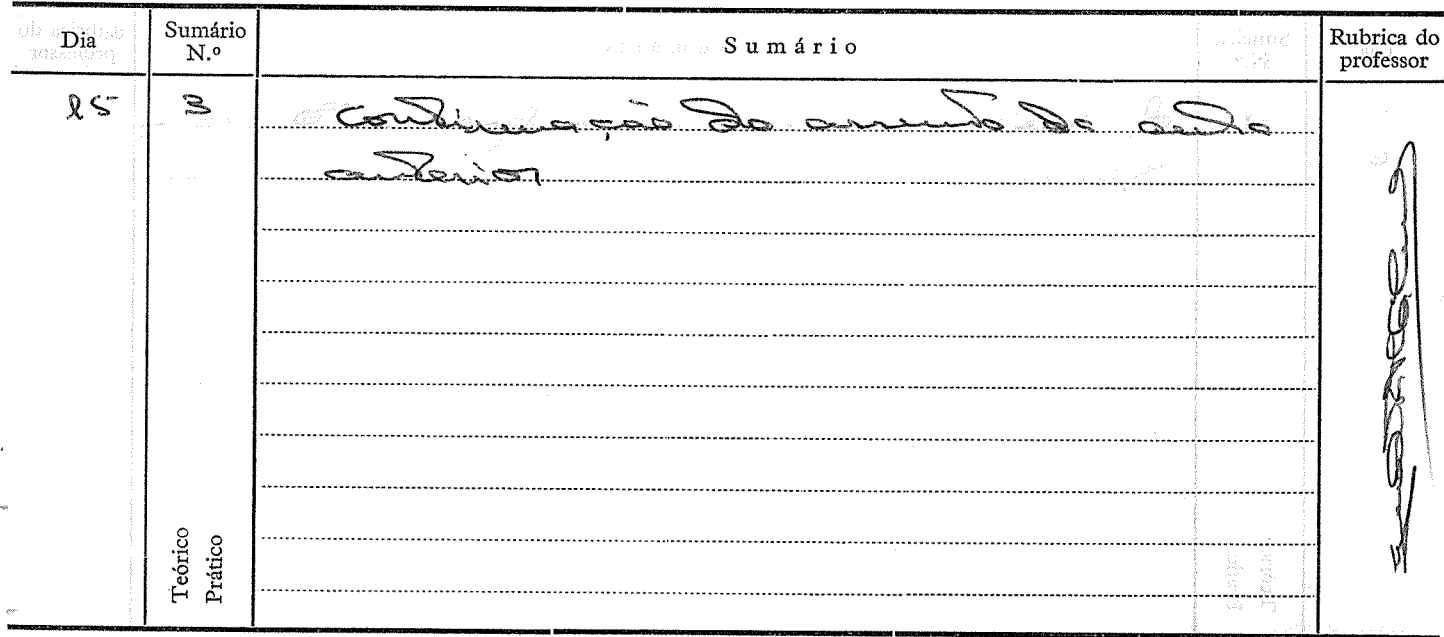 Dia Sumário N.º Sumário Rubrica do professor
25 3 Continuação do assunto da aula
anterior
Teórico
Prático